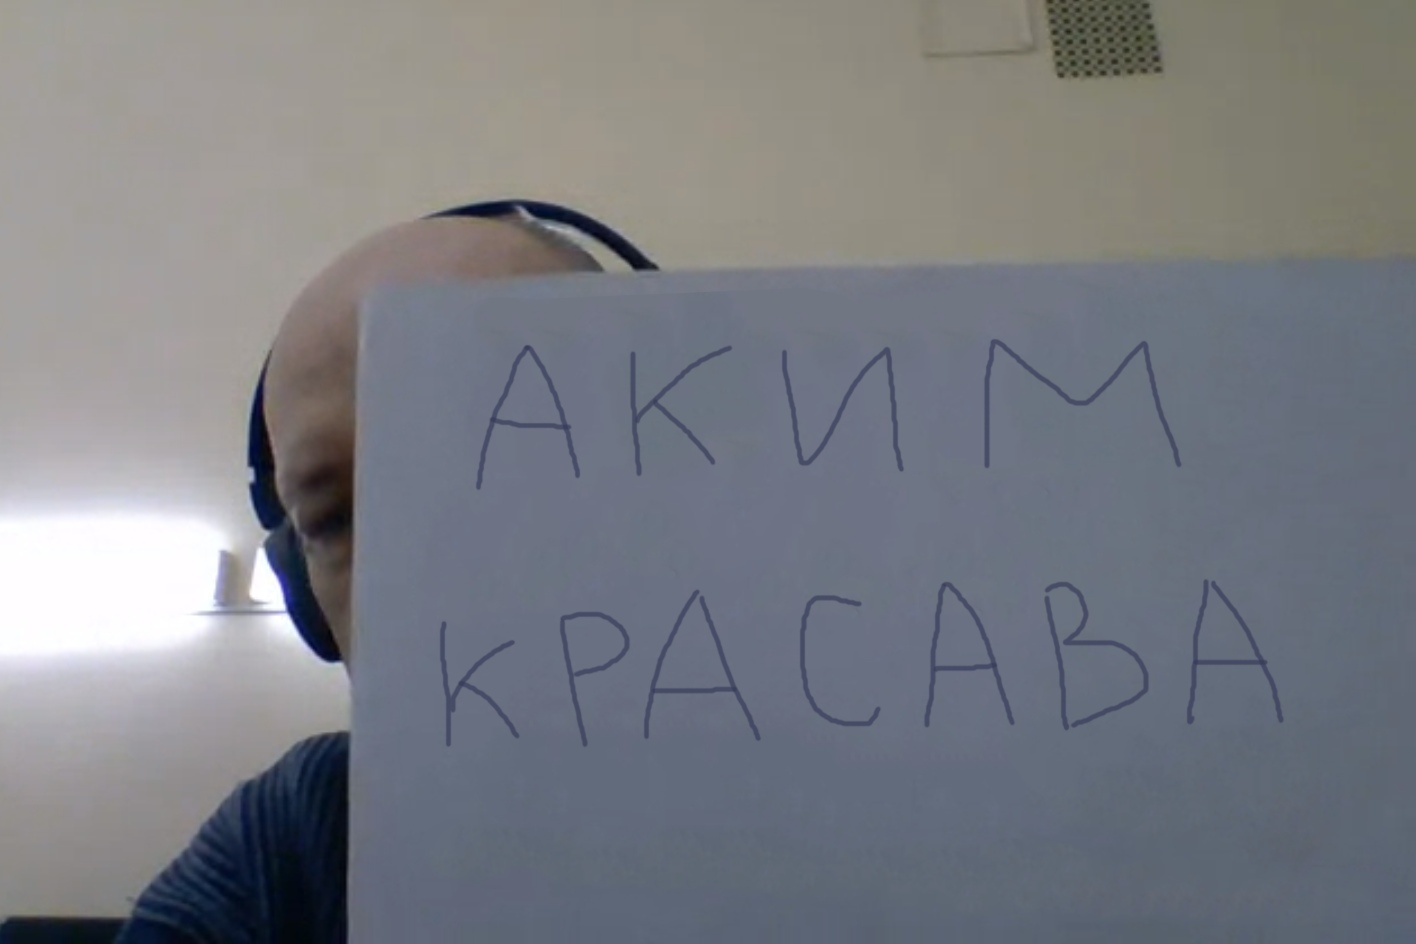 АКИМ
КРАСАВА